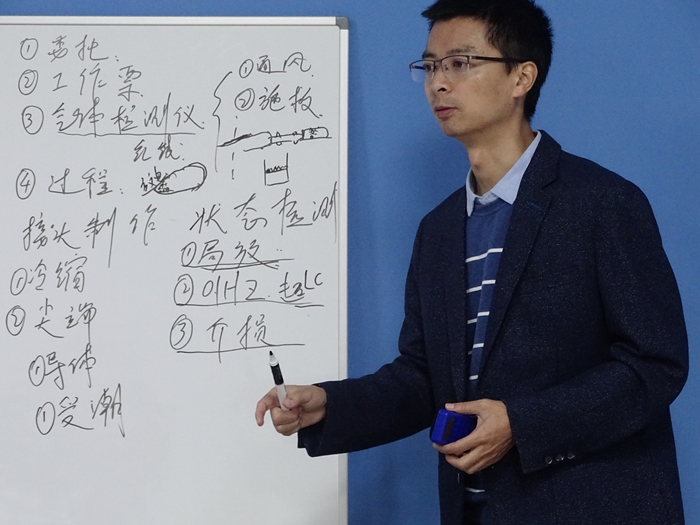 ① 委托
② 工作票
③ 气体检测仪
红线
④ 过程:
① 通风
② 施救
接头制作
① 冷缩
② 尖端
① 导体
① 受潮
状态检测
① 局放
② 01HZ 超LC
③ 介损